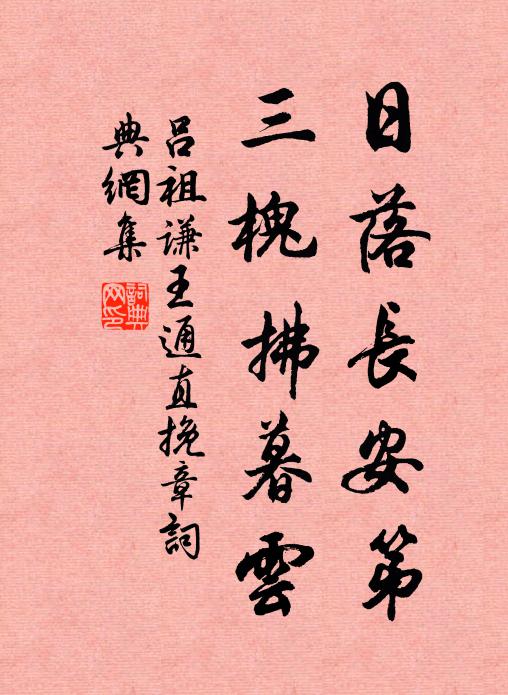 日落長安第
三槐拂暮雲
呂祖謙王通直挽章詞
典網集
詞典網印